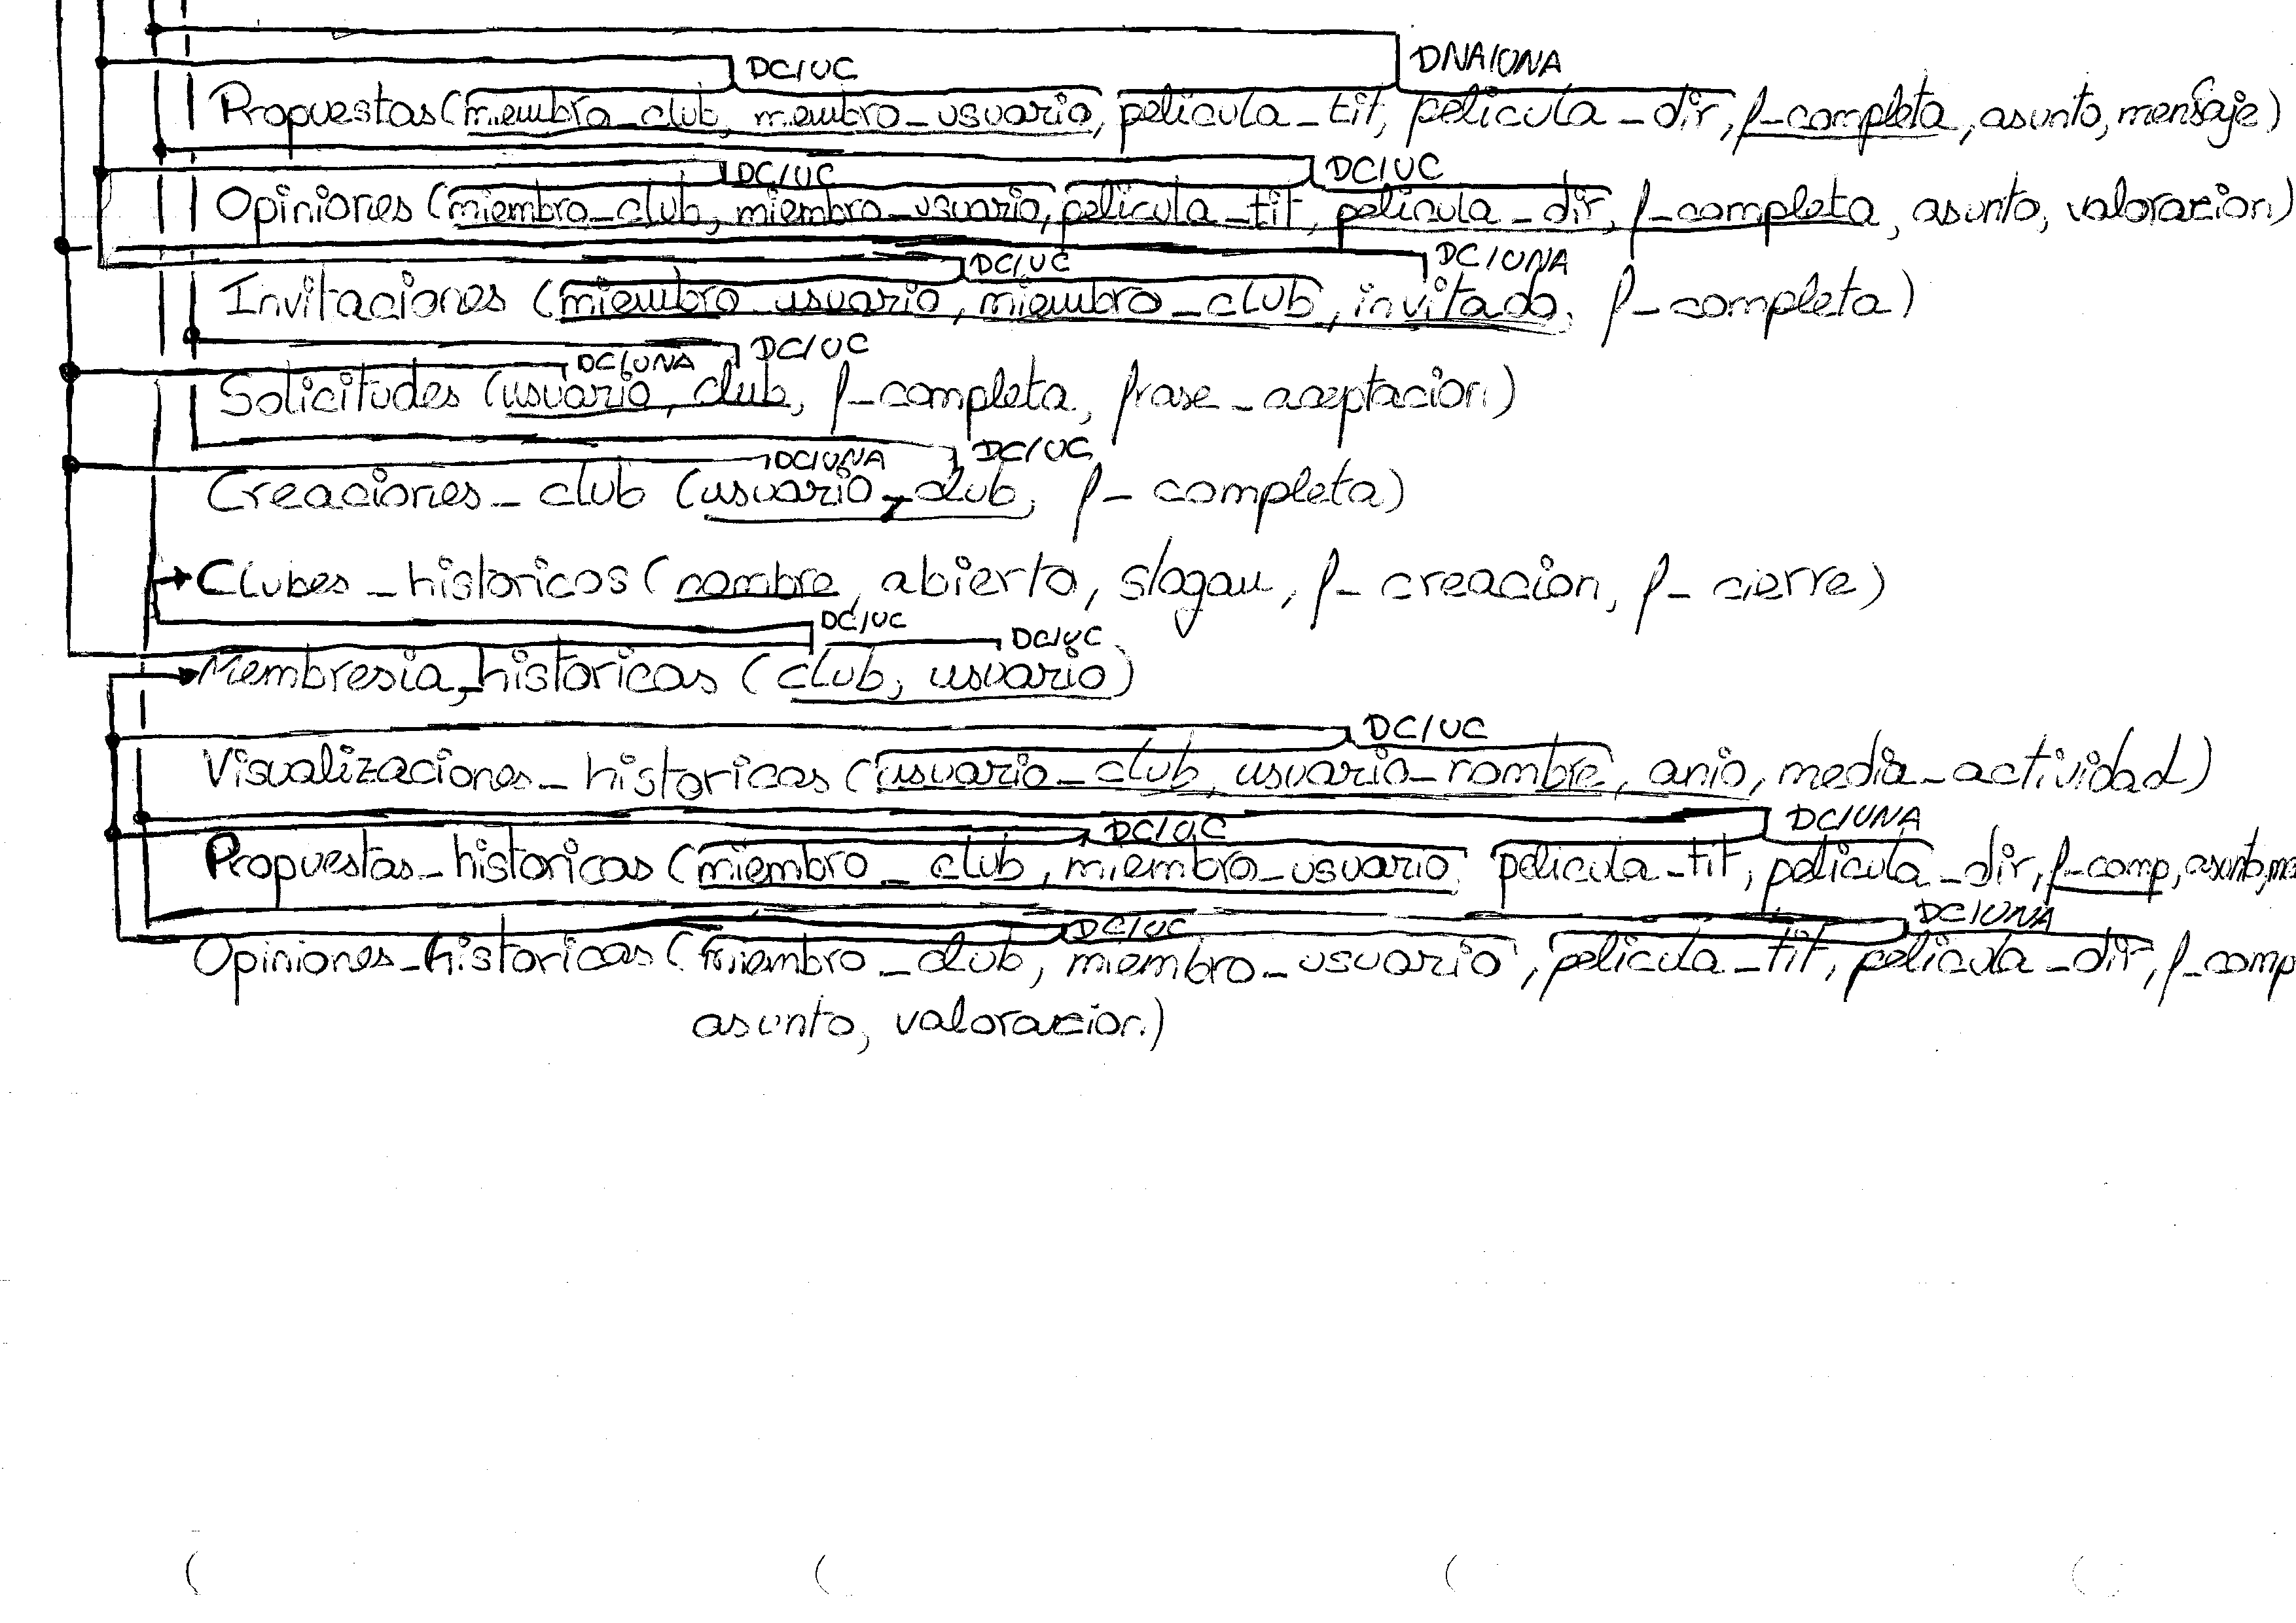 DC/UC DNA/UNA
Propuestas (miembro_club, miembro_usuario, pelicula_tit, pelicula_dir, f_completa, asunto, mensaje)
DC/UC DC/UC
Opiniones (miembro_club, miembro_usuario, pelicula_tit, pelicula_dir, f_completa, asunto, valoracion)
DC/UC DC/UNA
Invitaciones (miembro_usuario, miembro_club, invitado, f_completa)
DC/UNA DC/UC
Solicitudes (usuario, club, f_completa, frase_aceptacion)
DC/UNA DC/UC
Creaciones_club (usuario, club, f_completa)
Clubes_historicos (nombre, abierto, slogan, f_creacion, f_cierre)
DC/UC DC/UC
Membresia_historicas (club, usuario)
DC/UC
Visualizaciones_historicas (usuario_club, usuario_nombre, anio, media_actividad)
DC/UC DC/UNA
Propuestas_historicas (miembro_club, miembro_usuario, pelicula_tit, pelicula_dir, f_comp, asunto,
DC/UC DC/UNA
Opiniones_historicas (miembro_club, miembro_usuario, pelicula_tit, pelicula_dir, f_comp
asunto, valoracion)